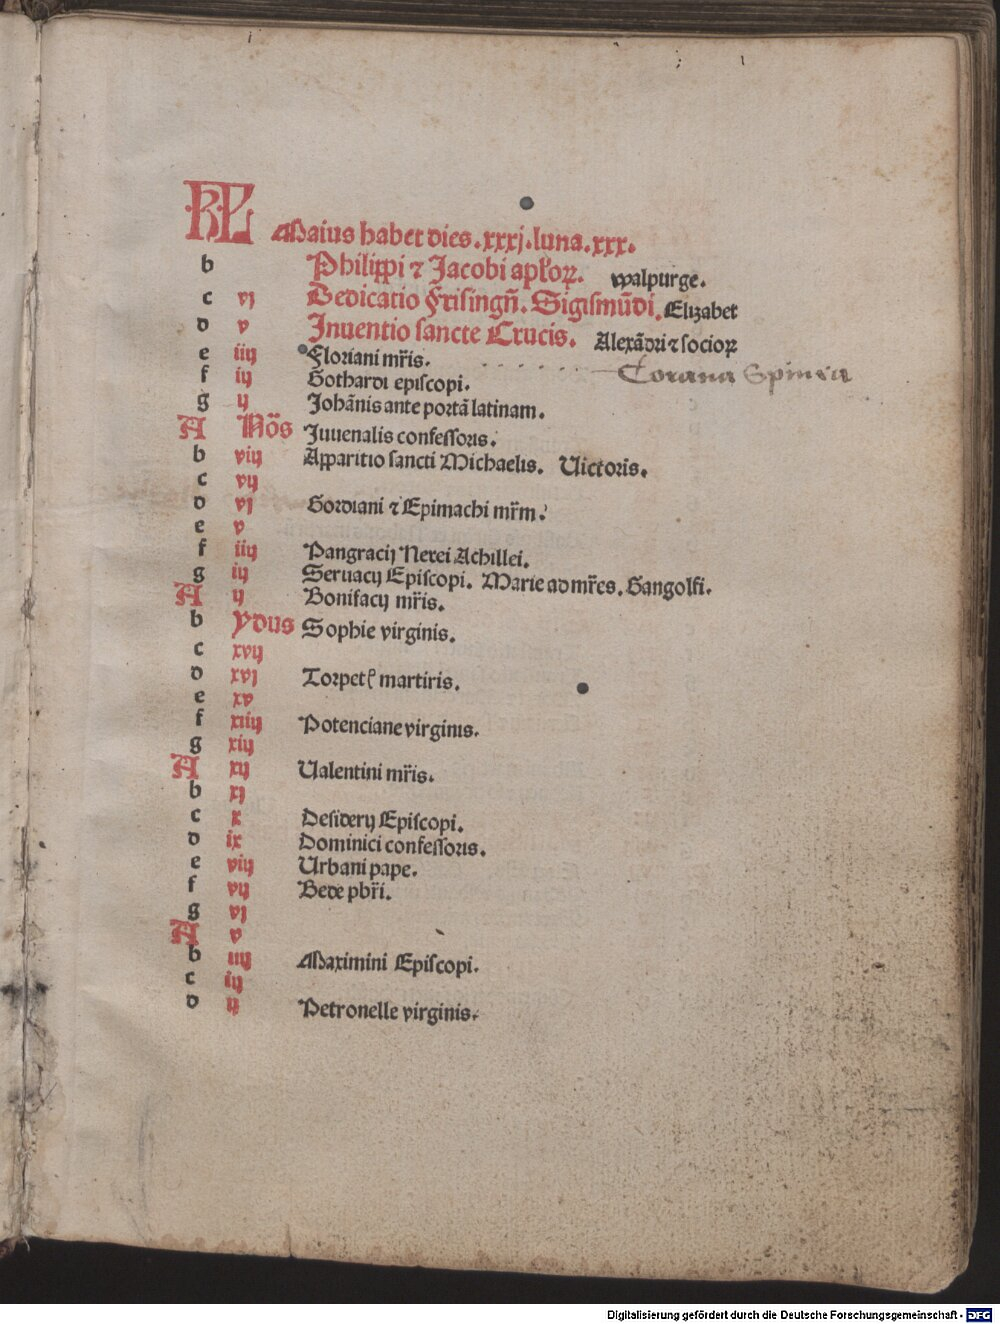 KL Maius habet dies .xxxj. luna .xxx.
b Philippi ⁊ Jacobi apłoꝝ. walpurge.
c vj Dedicatio Frisingn̄. Sigismūdi. Elizabet
d v Inuentio sancte Crucis. Alexādri ⁊ socioꝝ
e iiij Floriani mr̄is.
Corona Spinea
f iij Gothardi episcopi.
g ij Johānis ante portā latinam.
A Nōs Juuenalis confessoris.
b viij Apparitio sancti Michaelis. Uictoris.
c vij
d vj Gordiani ⁊ Epimachi mr̄m.
e v
f iiij Pangracij Nerei Achillei.
g iij Seruacij Episcopi. Marie ad mr̄es. Gangolfi.
A ij Bonifacij mr̄is.
b ydus Sophie virginis.
c xvij
d xvj Torpetꝭ martiris.
e xv
f xiiij Potenciane virginis.
g xiij
A xij Ualentini mr̄is.
b xj
c x Desiderij Episcopi.
d ix Dominici confessoris.
e viij Urbani pape.
f vij Bede pbr̄i.
g vj
A v
b iiij Maximini Episcopi.
c iij
d ij Petronelle virginis.
Digitalisierung gefördert durch die Deutsche Forschungsgemeinschaft - DFG